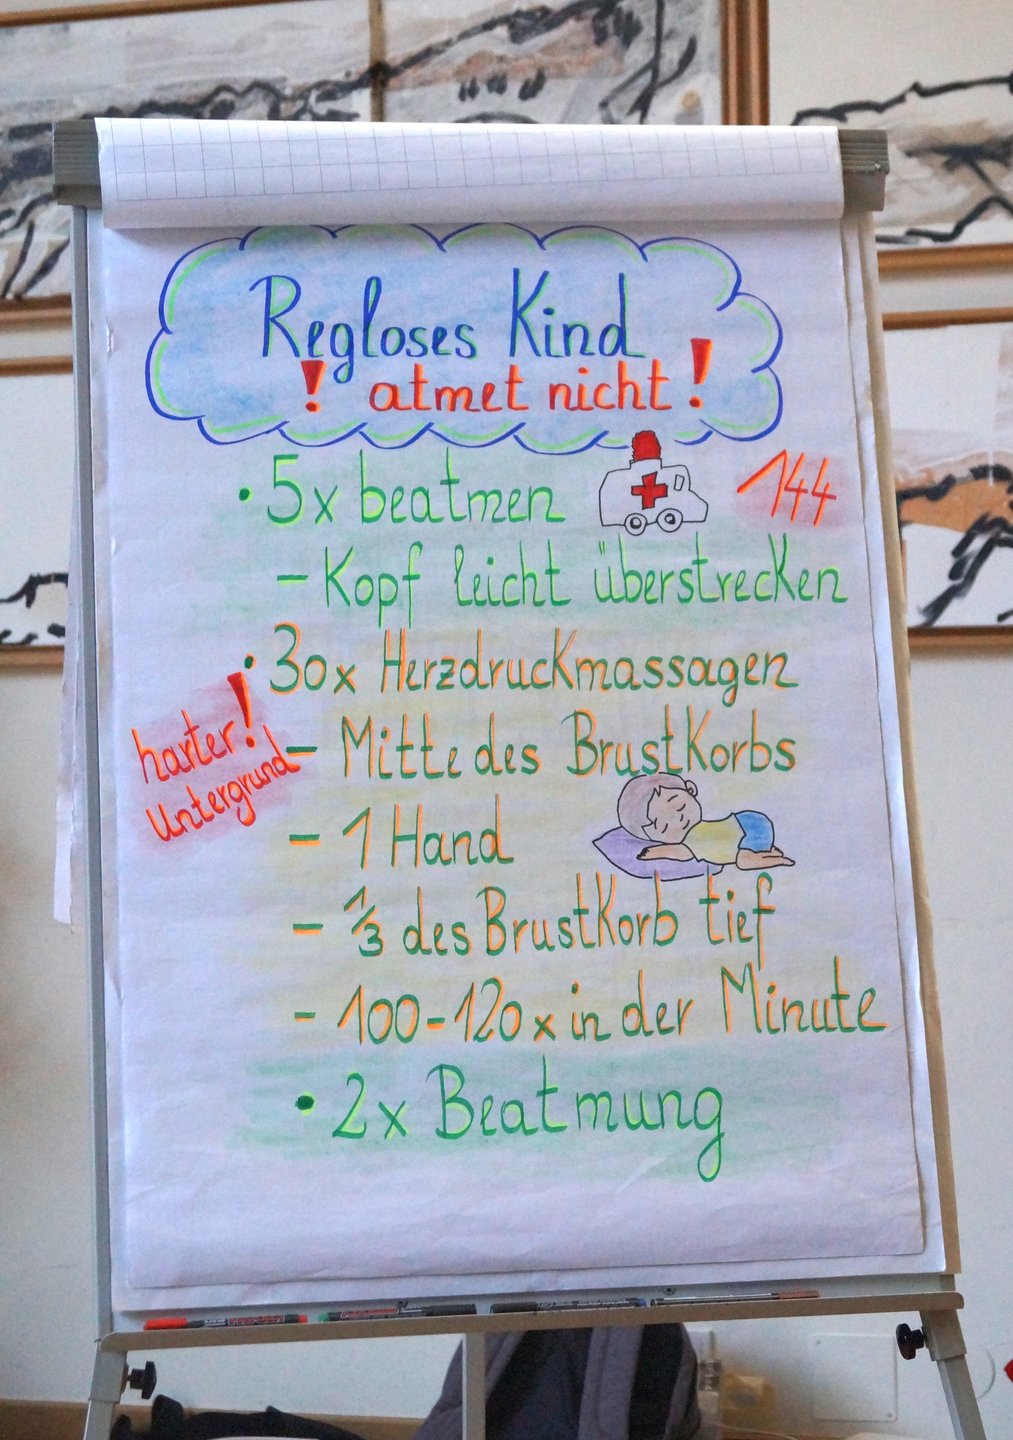 Regloses Kind
! atmet nicht !
• 5x beatmen
144
– Kopf leicht überstrecken
• 30x Herzdruckmassagen
harter !
Untergrund
– Mitte des Brustkorbs
– 1 Hand
– 1/3 des Brustkorb tief
– 100-120x in der Minute
• 2x Beatmung